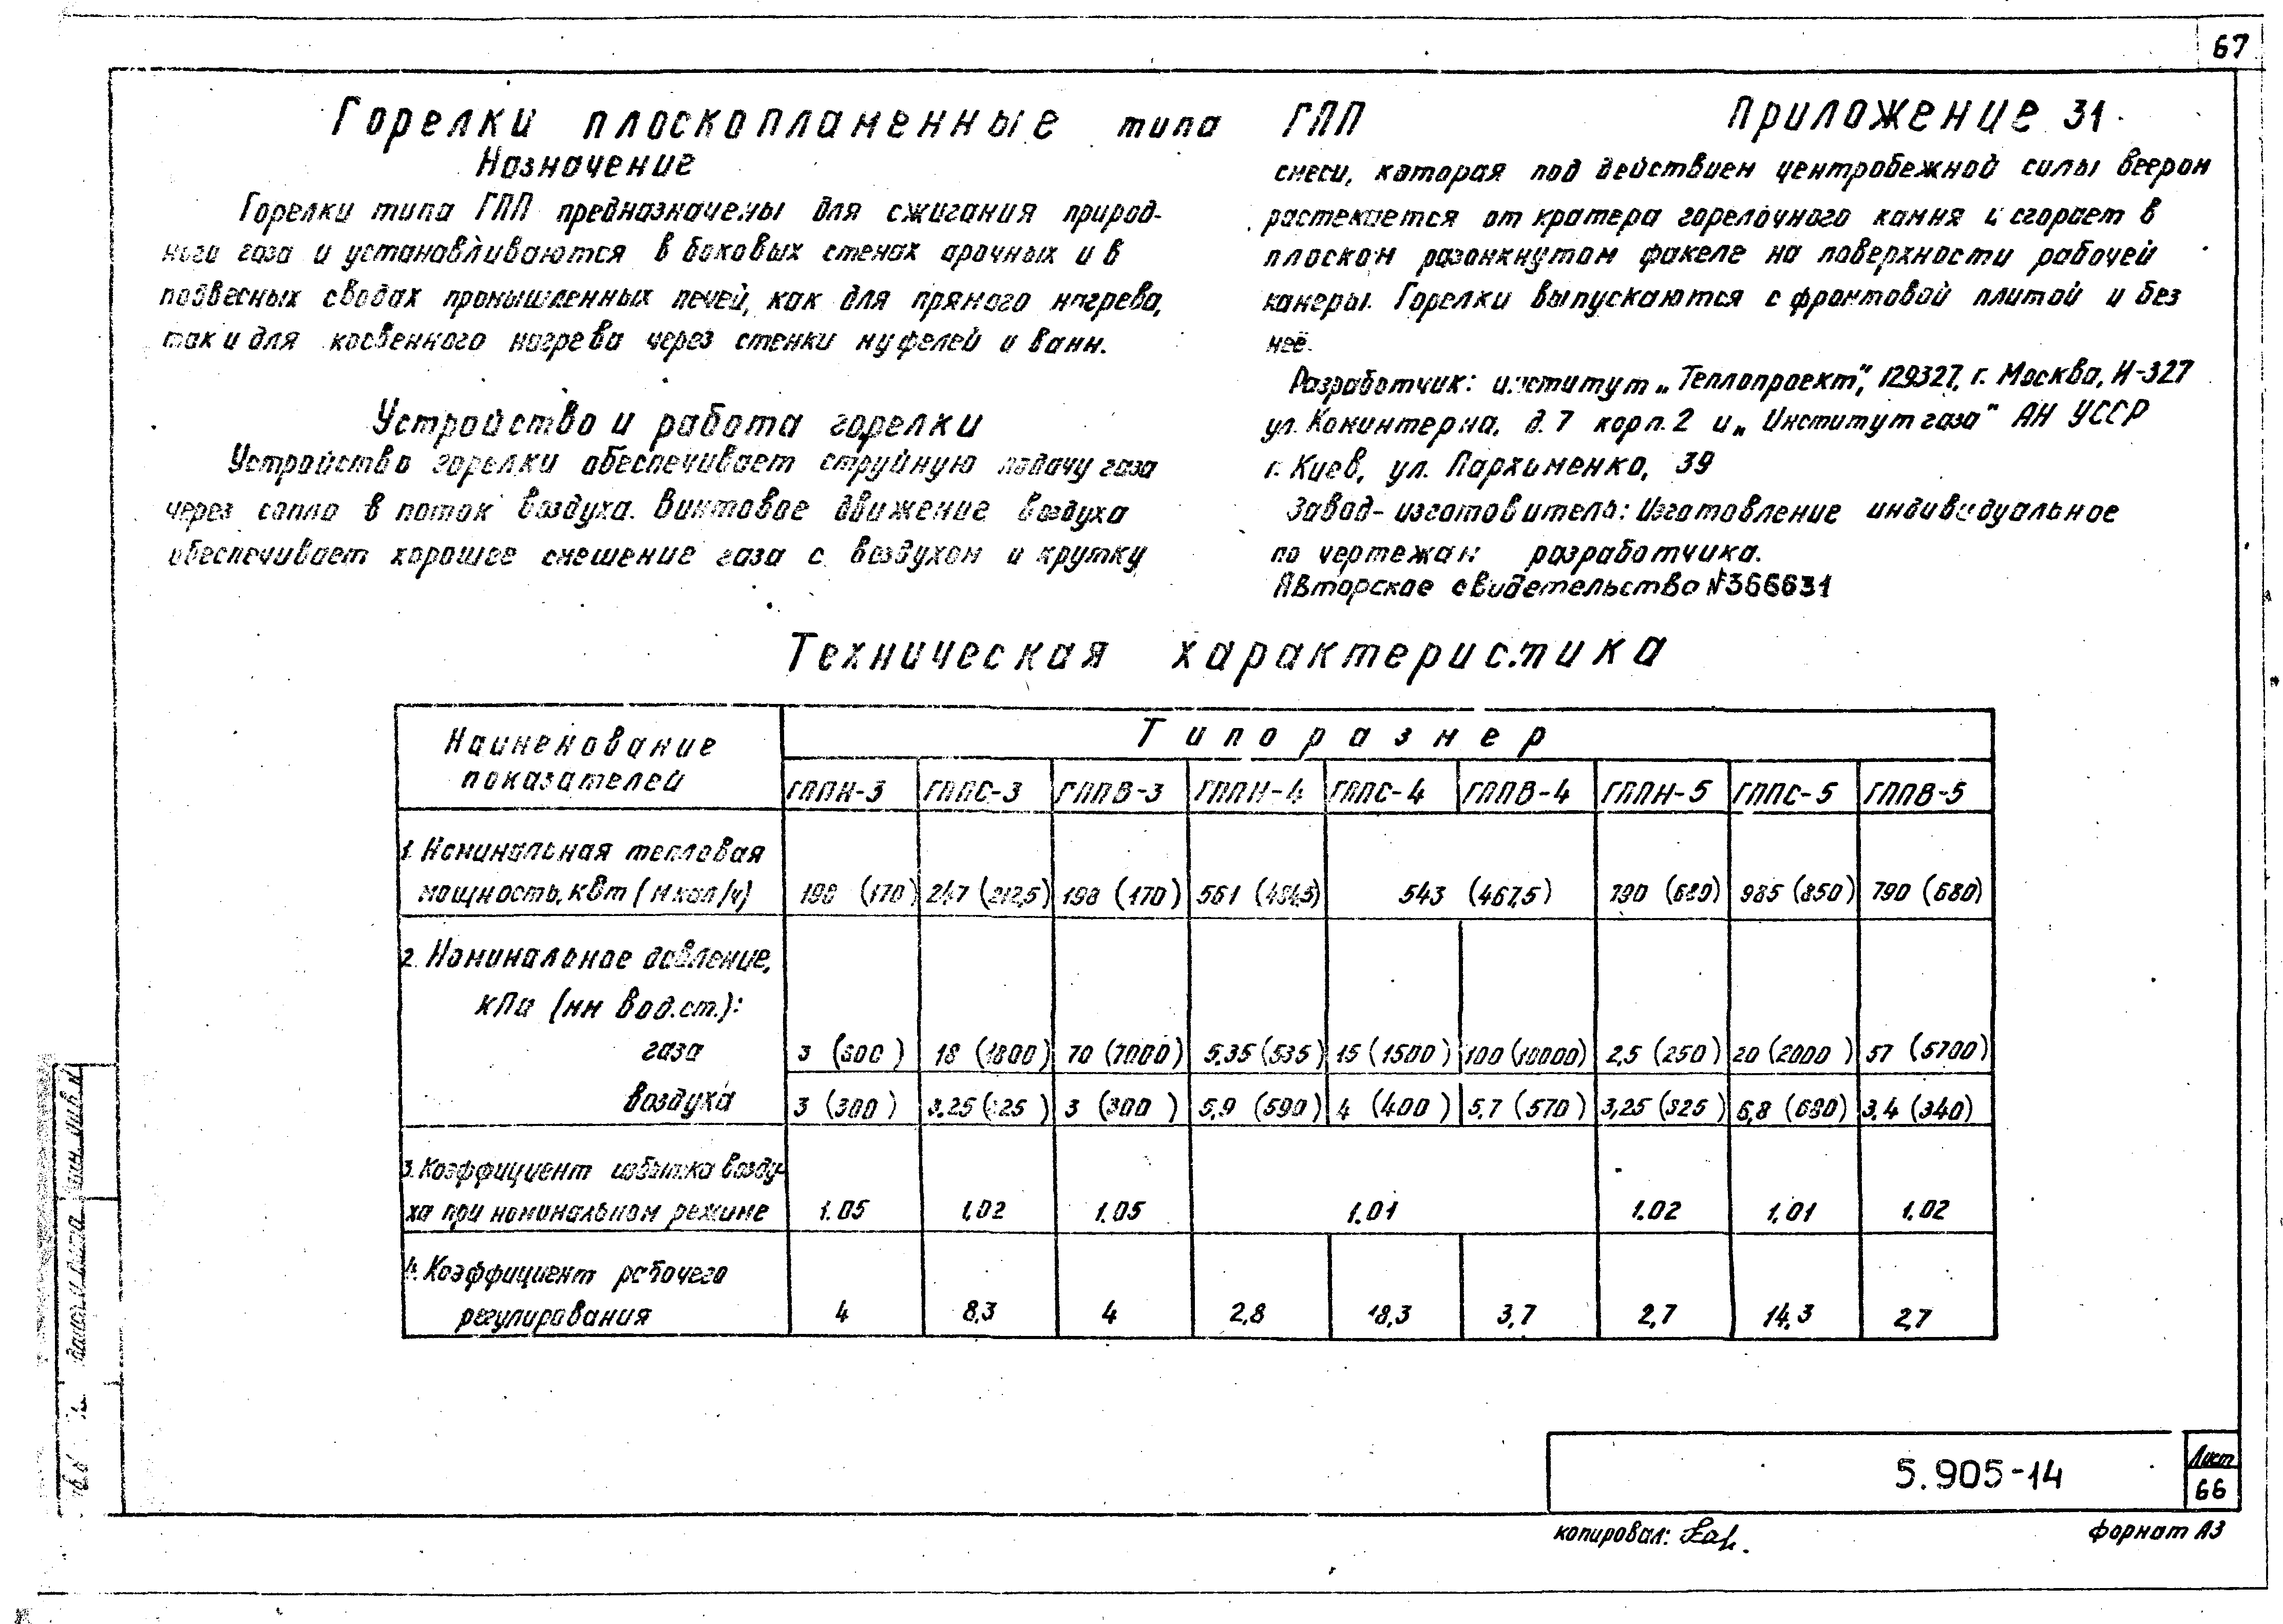 67
Приложение 31
Горелки плоскопламенные типа ГПП
Назначение
Горелки типа ГПП предназначены для сжигания природ-
ного газа и устанавливаются в боковых стенах арочных и в
подвесных сводах промышленных печей, как для прямого нагрева,
так и для косвенного нагрева через стенки муфелей и ванн.
Устройство и работа горелки
Устройство горелки обеспечивает струйную подачу газа
через сопло в поток воздуха. Винтовое движение воздуха
обеспечивает хорошее смешение газа с воздухом и крутку
смеси, которая под действием центробежной силы веером
растекается от кратера горелочного камня и сгорает в
плоском разомкнутом факеле на поверхности рабочей
камеры. Горелки выпускаются с фронтовой плитой и без
неё.
Разработчик: институт „Теплопроект", 129327, г. Москва, И-327
ул. Коминтерна, д. 7 корп. 2 и „Институт газа" АН УССР
г. Киев, ул. Пархоменко, 39
Завод-изготовитель: Изготовление индивидуальное
по чертежам разработчика.
Авторское свидетельство №366631
Техническая характеристика
Наименование показателей
Типоразмер
ГППН-3 ГППС-3 ГППВ-3 ГППН-4 ГППС-4 ГППВ-4 ГППН-5 ГППС-5 ГППВ-5
1. Номинальная тепловая
мощность, кВт (Мкал/ч) 198 (170) 247 (212,5) 198 (170) 561 543 (467,5) 790 (680) 985 (850) 790 (680)
2. Номинальное давление,
кПа (мм вод.ст.):
газа 3 (300) 18 (1800) 70 (7000) 5,35 (535) 15 (1500) 100 (10000) 2,5 (250) 20 (2000) 57 (5700)
воздуха 3 (300) 3,25 (325) 3 (300) 5,9 (590) 4 (400) 5,7 (570) 3,25 (325) 6,8 (680) 3,4 (340)
3. Коэффициент избытка возду-
ха при номинальном режиме 1.05 1,02 1.05 1.01 1.02 1.01 1.02
4. Коэффициент рабочего
регулирования 4 8,3 4 2,8 18,3 3,7 2,7 14,3 2,7
5.905-14
Лист
66
копировал:
формат А3